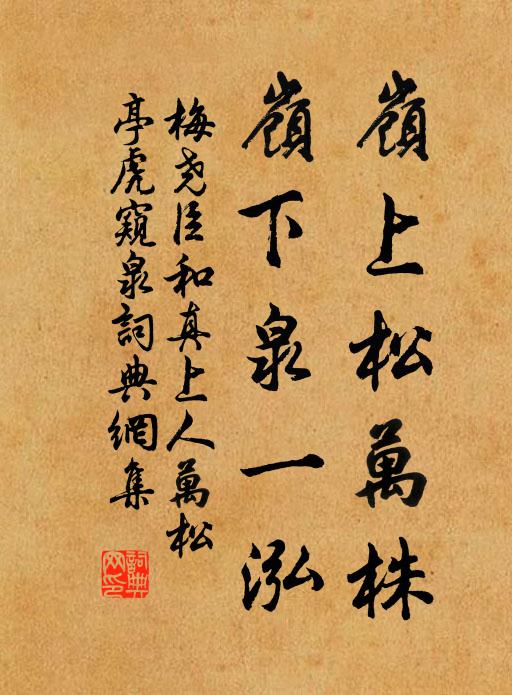 嶺上松萬株
嶺下泉一泓
梅尧臣和真上人萬松
亭虎窺泉詞典網集
詞典网印